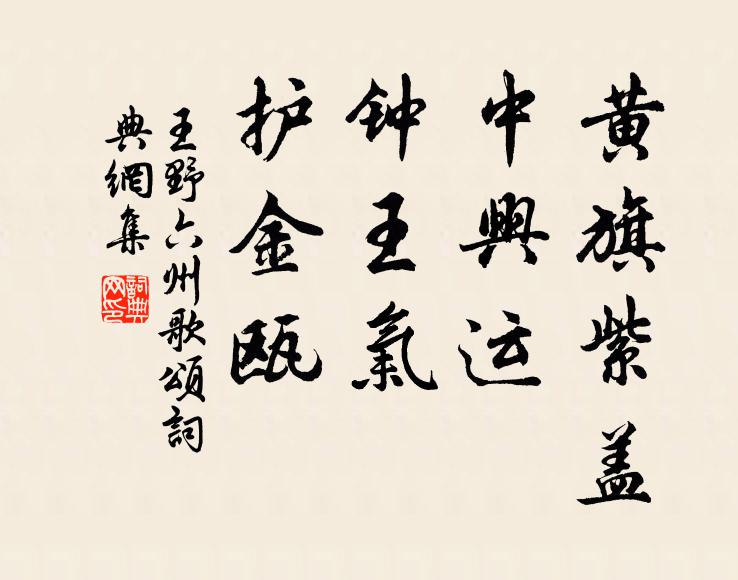 黄旗紫盖
中興运
钟王氣
护金瓯
王野六州歌頌詞
典網集
詞典网印